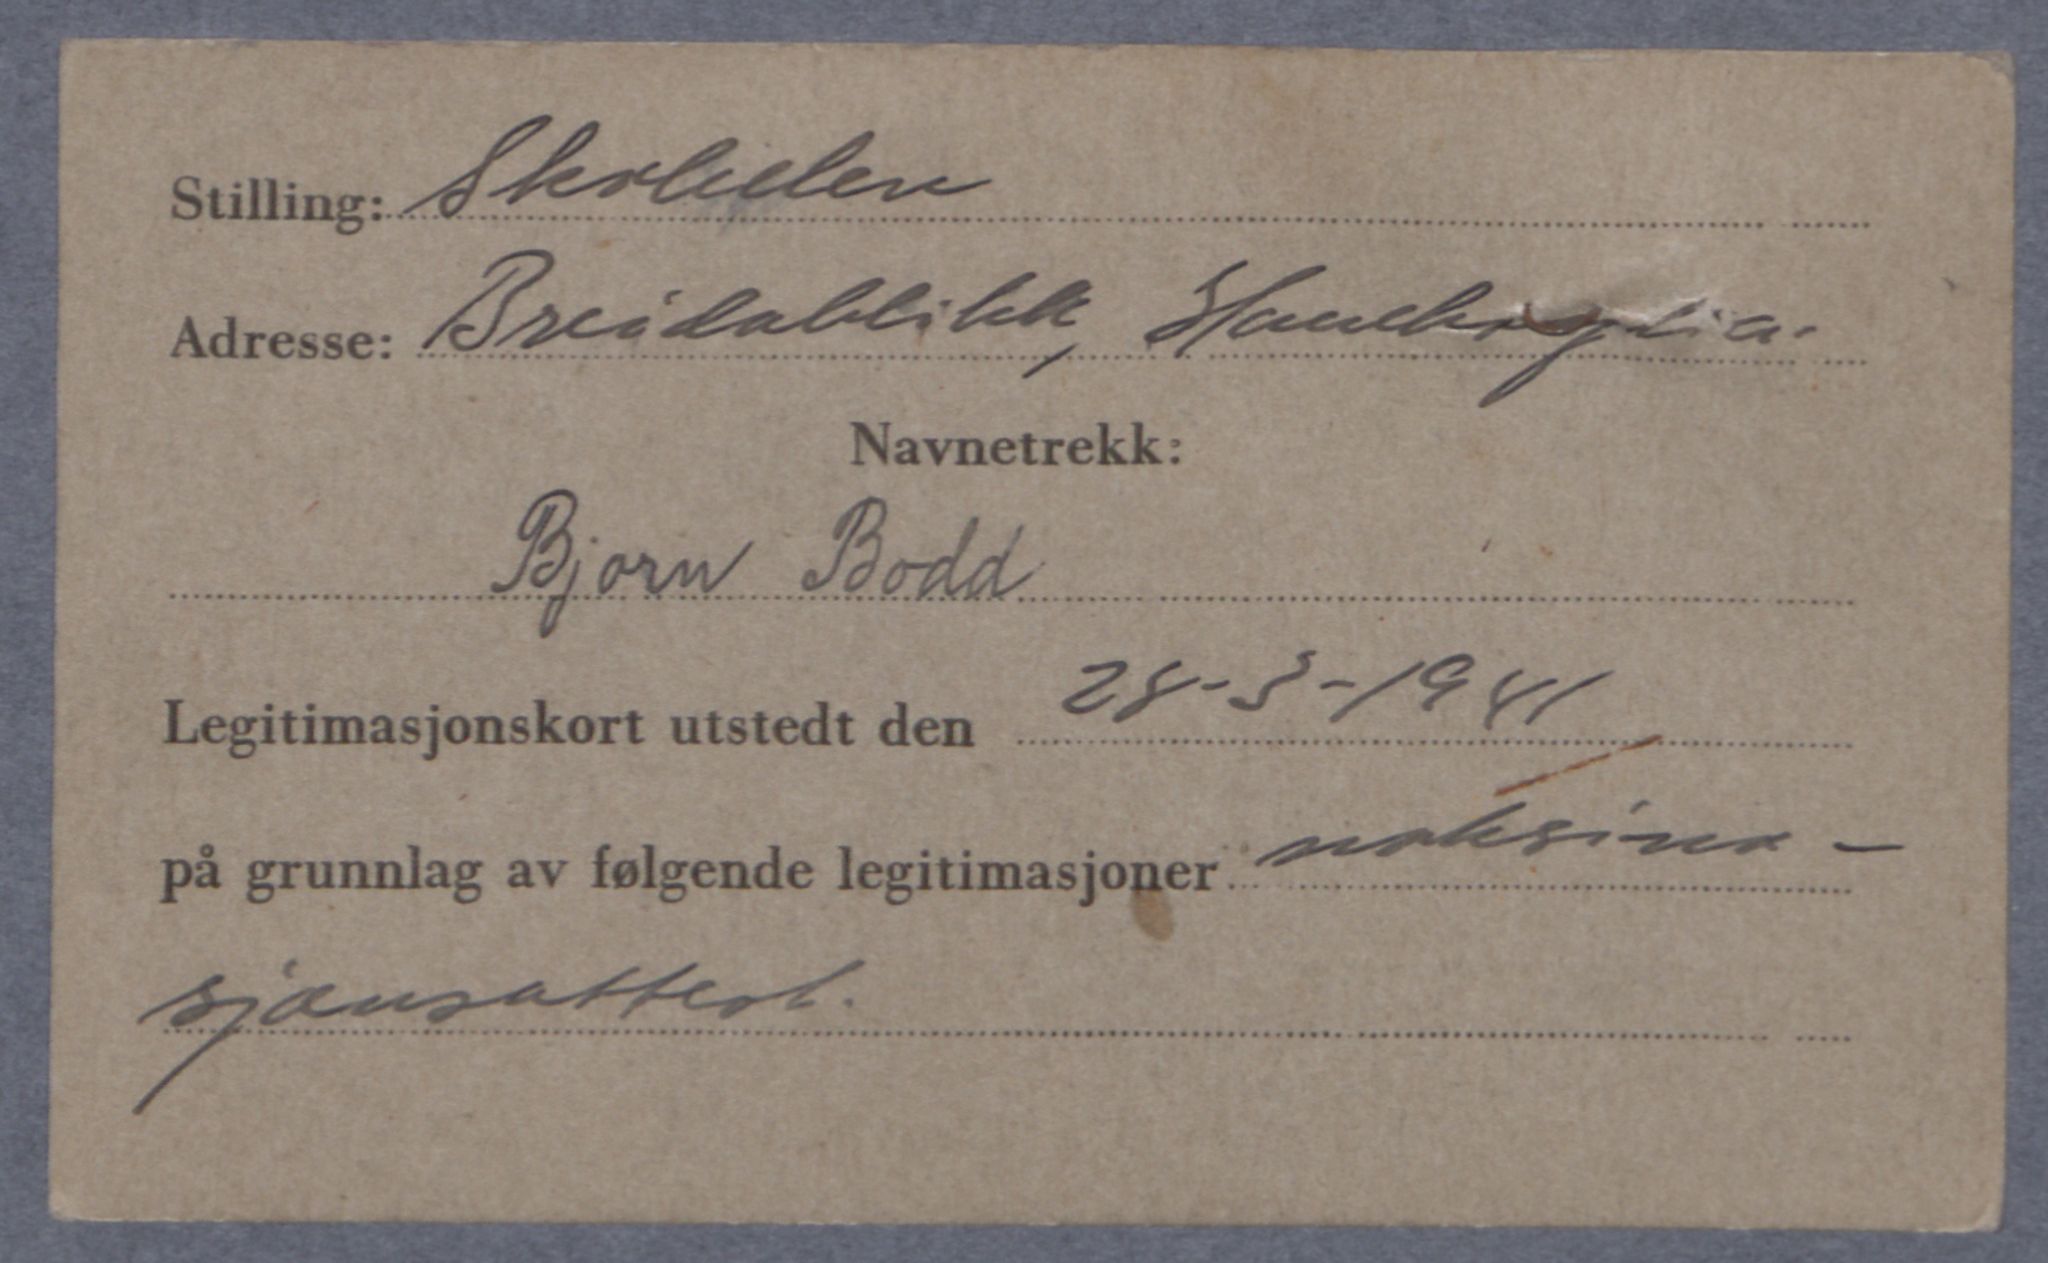 Stilling: Skoleelev
Adresse: Breidablikk, Haneborglia.
Navnetrekk:
Bjorn Bodd
Legitimasjonskort utstedt den 28-3-1941
på grunnlag av følgende legitimasjoner vaksina-
sjonsattest.